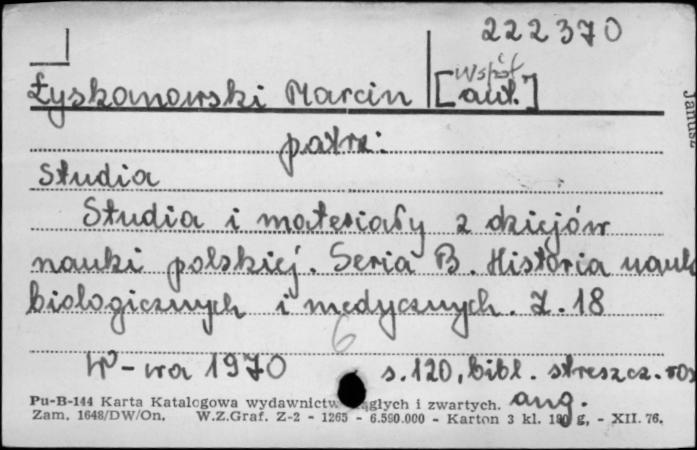 222370
Łyskanowski Marcin [współ aut.]
Janusz
patrz:
Studia
Studia i materiały z dziejów
nauki polskiej. Seria B. Historia nauk
biologicznych i medycznych. Z. 18
6
W-wa 1970 s. 120, bibl. streszcz. ros
ang.
Pu-B-144 Karta Katalogowa wydawnictw ciągłych i zwartych.
Zam. 1648/DW/On. W.Z.Graf. Z-2 - 1265 - 6.590.000 - Karton 3 kl. 180 g, - XII. 76.